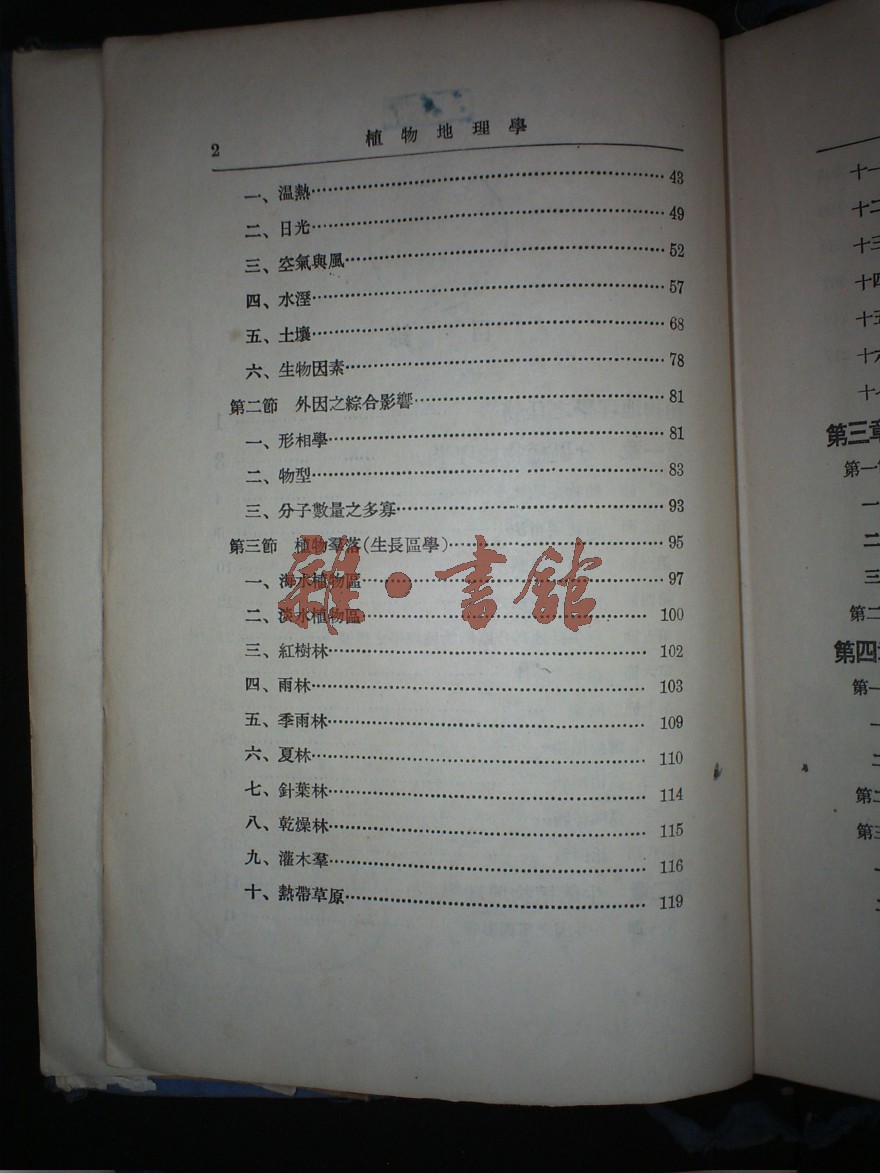 2 植物地理學
一、溫熱 43
二、日光 49
三、空氣與風 52
四、水溼 57
五、土壤 68
六、生物因素 78
第二節 外因之綜合影響 81
一、形相學 81
二、物型 83
三、分子數量之多寡 93
第三節 植物羣落(生長區學) 95
一、海水植物區 97
二、淡水植物區 100
三、紅樹林 102
四、雨林 103
五、季雨林 109
六、夏林 110
七、針葉林 114
八、乾燥林 115
九、灌木羣 116
十、熱帶草原 119
雜·書館
十一
十二
十三
十四
十五
十六
十
第三章
第一
一
二
三
第二
第四
第一
一
二
第二
第三
一
二